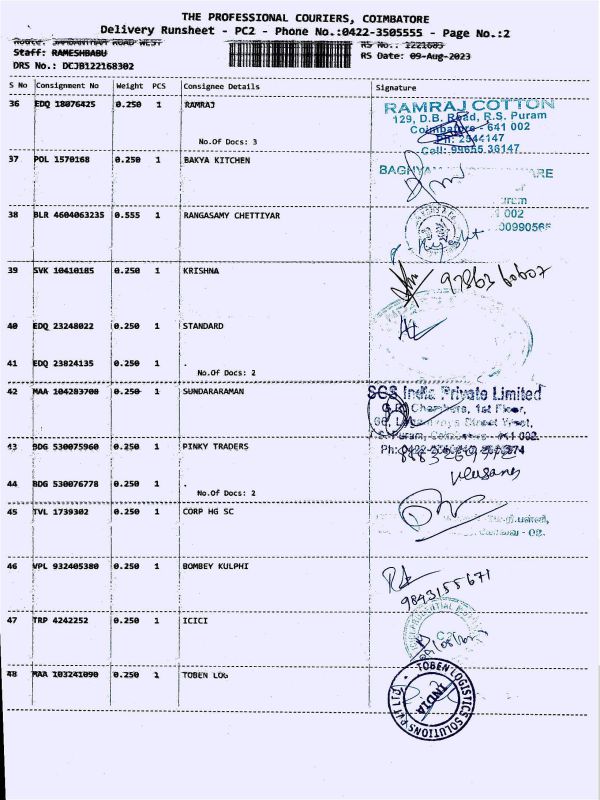 THE PROFESSIONAL COURIERS, COIMBATORE
Delivery Runsheet - PC2 - Phone No.:0422-3505555 - Page No.:2
Route: SAMBANTHAM ROAD WEST RS No.: 1221683
Staff: RAMESHBABU RS Date: 09-Aug-2023
DRS No.: DCJB122168302
S No Consignment No Weight PCS Consignee Details Signature
36 EDQ 18076425 0.250 1 RAMRAJ
RAMRAJ COTTON
129, D.B. Road, R.S. Puram
Coimbatore - 641 002
Ph: 2544147
Cell: 99655 36147
No.Of Docs: 3
37 POL 1570168 0.250 1 BAKYA KITCHEN
38 BLR 4604063235 0.555 1 RANGASAMY CHETTIYAR
002
39 SVK 10410185 0.250 1 KRISHNA
9786360607
40 EDQ 23248022 0.250 1 STANDARD
41 EDQ 23824135 0.250 1 .
No.Of Docs: 2
42 MAA 104283708 0.250 1 SUNDARARAMAN
SGS India Private Limited
Chambers, 1st Floor,
Street West,
R.S. Puram, Coimbatore - 641 002.
43 BDG 530075960 0.250 1 PINKY TRADERS
44 BDG 530076778 0.250 1 .
No.Of Docs: 2
45 TVL 1739302 0.250 1 CORP HG SC
46 VPL 932405380 0.250 1 BOMBEY KULPHI
9843155671
47 TRP 4242252 0.250 1 ICICI
48 MAA 103241090 0.250 1 TOBEN LOG
TOBEN LOGISTICS SOLUTIONS PVT LTD
INDIA